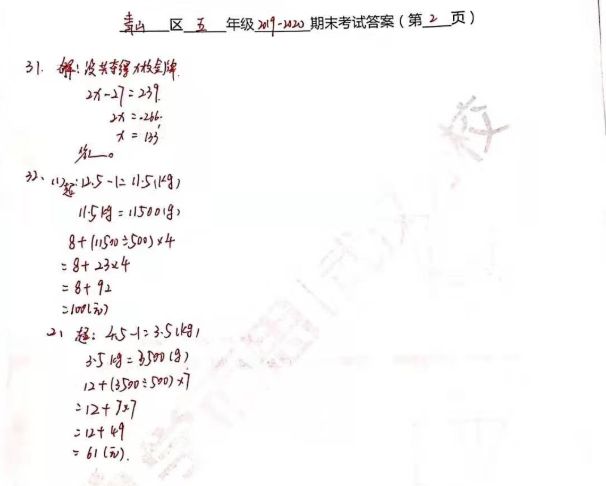 青山 区 五 年级 2019-2020 期末考试答案（第 2 页）
31. 解：设共夺得x枚金牌.
2x-27=239.
2x=266.
x=133
答__。
32、(1)超：12.5-1=11.5(kg)
11.5kg=11500(g)
8+(11500÷500)×4
=8+23×4
=8+92
=100(元)
2) 超：4.5-1=3.5(kg)
3.5kg=3500(g)
12+(3500÷500)×7
=12+7×7
=12+49
=61(元).